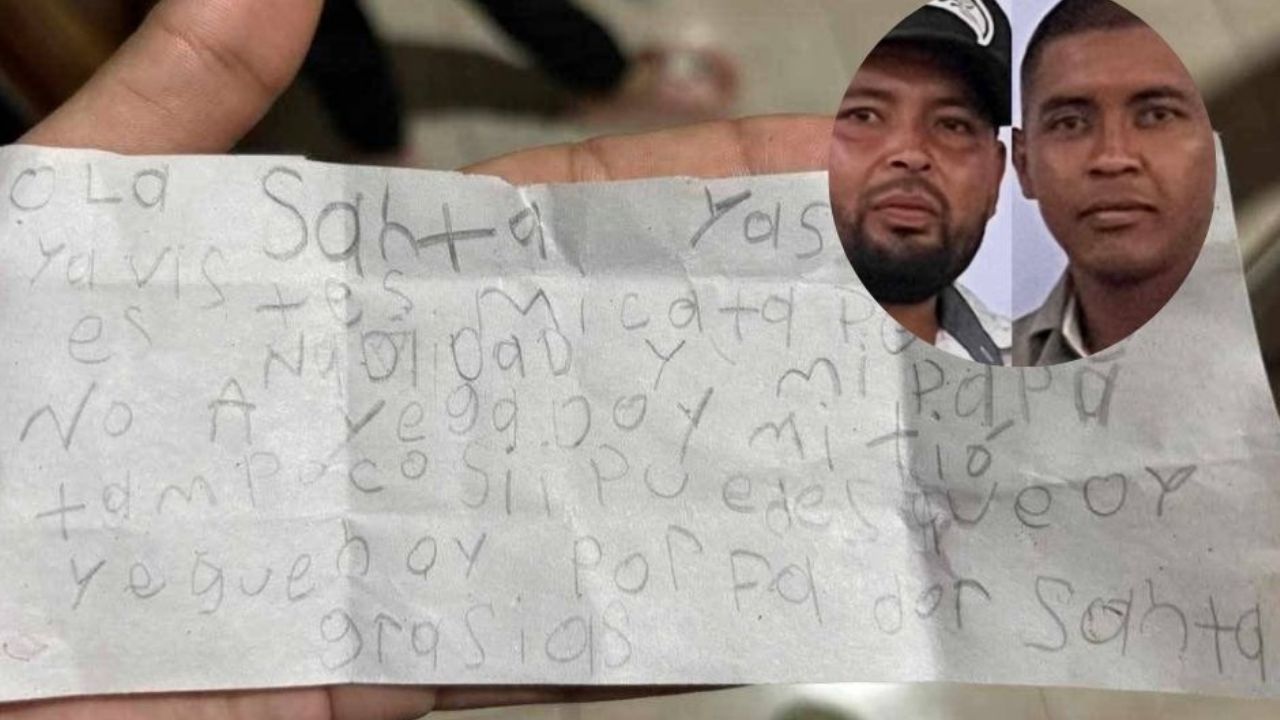 OLa Santa Yas
Ya vistes mi cata Po
es NaViDaD Y mi PaPá
No A yegaDo Y mi tió
tamPoco Sii PuedesqueoY
yeguen oY Por Fador Santa
grasias